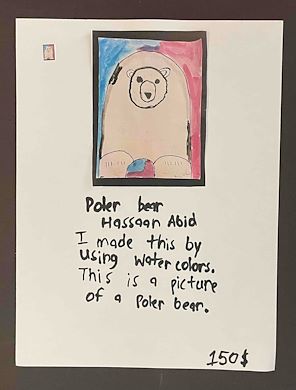 Poler bear
Hassaan Abid
I made this by
using water colors.
This is a picture
of a Poler bear.
150$